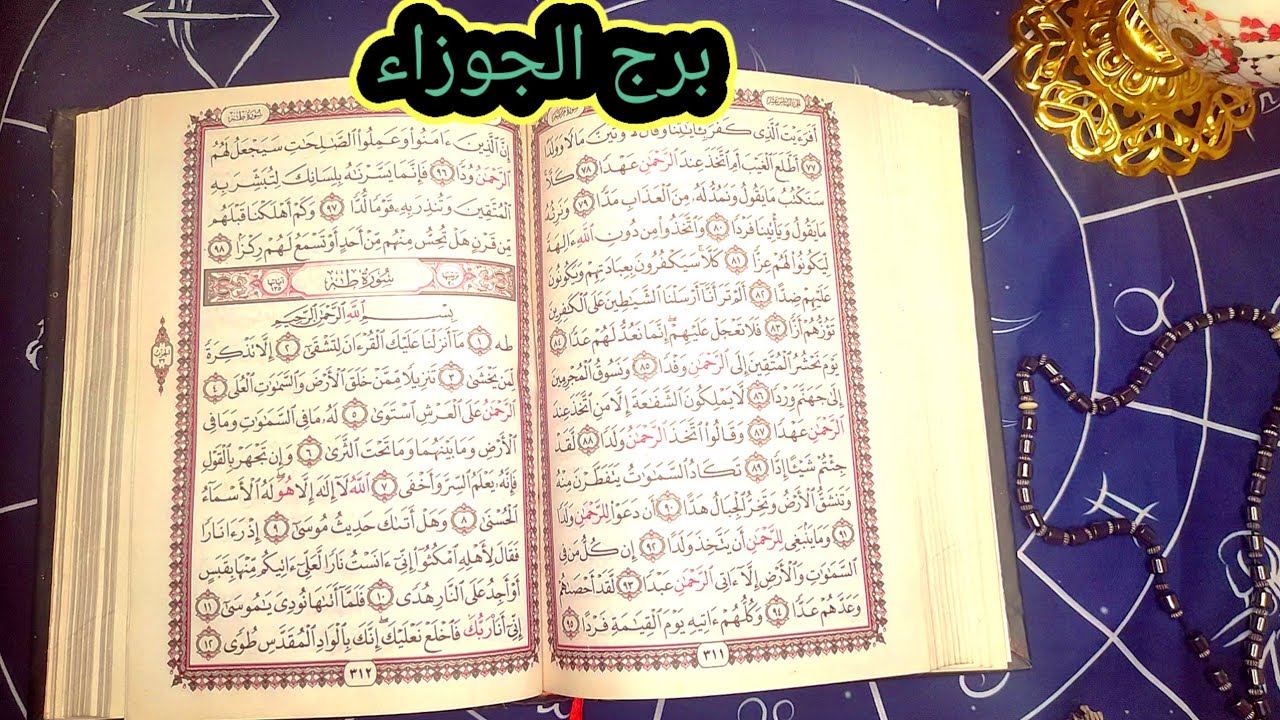 برج الجوزاء
سُورَةُ مَرْيَم
أَفَرَءَيْتَ ٱلَّذِى كَفَرَ بِـَٔايَـٰتِنَا وَقَالَ لَأُوتَيَنَّ مَالًا وَوَلَدًا
٧٧ أَطَّلَعَ ٱلْغَيْبَ أَمِ ٱتَّخَذَ عِندَ ٱلرَّحْمَـٰنِ عَهْدًا ٧٨ كَلَّا
سَنَكْتُبُ مَا يَقُولُ وَنَمُدُّ لَهُۥ مِنَ ٱلْعَذَابِ مَدًّا ٧٩ وَنَرِثُهُۥ
مَا يَقُولُ وَيَأْتِينَا فَرْدًا ٨٠ وَٱتَّخَذُوا۟ مِن دُونِ ٱللَّهِ ءَالِهَةً
لِّيَكُونُوا۟ لَهُمْ عِزًّا ٨١ كَلَّا سَيَكْفُرُونَ بِعِبَادَتِهِمْ وَيَكُونُونَ
عَلَيْهِمْ ضِدًّا ٨٢ أَلَمْ تَرَ أَنَّآ أَرْسَلْنَا ٱلشَّيَـٰطِينَ عَلَى ٱلْكَـٰفِرِينَ
تَؤُزُّهُمْ أَزًّا ٨٣ فَلَا تَعْجَلْ عَلَيْهِمْ إِنَّمَا نَعُدُّ لَهُمْ عَدًّا ٨٤
يَوْمَ نَحْشُرُ ٱلْمُتَّقِينَ إِلَى ٱلرَّحْمَـٰنِ وَفْدًا ٨٥ وَنَسُوقُ ٱلْمُجْرِمِينَ
إِلَىٰ جَهَنَّمَ وِرْدًا ٨٦ لَّا يَمْلِكُونَ ٱلشَّفَـٰعَةَ إِلَّا مَنِ ٱتَّخَذَ عِندَ
ٱلرَّحْمَـٰنِ عَهْدًا ٨٧ وَقَالُوا۟ ٱتَّخَذَ ٱلرَّحْمَـٰنُ وَلَدًا ٨٨ لَّقَدْ
جِئْتُمْ شَيْـًٔا إِدًّا ٨٩ تَكَادُ ٱلسَّمَـٰوَٰتُ يَتَفَطَّرْنَ مِنْهُ
وَتَنشَقُّ ٱلْأَرْضُ وَتَخِرُّ ٱلْجِبَالُ هَدًّا ٩٠ أَن دَعَوْا۟ لِلرَّحْمَـٰنِ وَلَدًا
٩١ وَمَا يَنۢبَغِى لِلرَّحْمَـٰنِ أَن يَتَّخِذَ وَلَدًا ٩٢ إِن كُلُّ مَن فِى
ٱلسَّمَـٰوَٰتِ وَٱلْأَرْضِ إِلَّآ ءَاتِى ٱلرَّحْمَـٰنِ عَبْدًا ٩٣ لَّقَدْ أَحْصَىٰهُمْ
وَعَدَّهُمْ عَدًّا ٩٤ وَكُلُّهُمْ ءَاتِيهِ يَوْمَ ٱلْقِيَـٰمَةِ فَرْدًا ٩٥
٣١١
سُورَةُ طه
إِنَّ ٱلَّذِينَ ءَامَنُوا۟ وَعَمِلُوا۟ ٱلصَّـٰلِحَـٰتِ سَيَجْعَلُ لَهُمُ
ٱلرَّحْمَـٰنُ وُدًّا ٩٦ فَإِنَّمَا يَسَّرْنَـٰهُ بِلِسَانِكَ لِتُبَشِّرَ بِهِ
ٱلْمُتَّقِينَ وَتُنذِرَ بِهِۦ قَوْمًا لُّدًّا ٩٧ وَكَمْ أَهْلَكْنَا قَبْلَهُم
مِّن قَرْنٍ هَلْ تُحِسُّ مِنْهُم مِّنْ أَحَدٍ أَوْ تَسْمَعُ لَهُمْ رِكْزًۢا ٩٨
سُورَةُ طه
بِسْمِ ٱللَّهِ ٱلرَّحْمَـٰنِ ٱلرَّحِيمِ
طه ١ مَآ أَنزَلْنَا عَلَيْكَ ٱلْقُرْءَانَ لِتَشْقَىٰٓ ٢ إِلَّا تَذْكِرَةً
لِّمَن يَخْشَىٰ ٣ تَنزِيلًا مِّمَّنْ خَلَقَ ٱلْأَرْضَ وَٱلسَّمَـٰوَٰتِ ٱلْعُلَى ٤
ٱلرَّحْمَـٰنُ عَلَى ٱلْعَرْشِ ٱسْتَوَىٰ ٥ لَهُۥ مَا فِى ٱلسَّمَـٰوَٰتِ وَمَا فِى
ٱلْأَرْضِ وَمَا بَيْنَهُمَا وَمَا تَحْتَ ٱلثَّرَىٰ ٦ وَإِن تَجْهَرْ بِٱلْقَوْلِ
فَإِنَّهُۥ يَعْلَمُ ٱلسِّرَّ وَأَخْفَى ٧ ٱللَّهُ لَآ إِلَـٰهَ إِلَّا هُوَ لَهُ ٱلْأَسْمَآءُ
ٱلْحُسْنَىٰ ٨ وَهَلْ أَتَىٰكَ حَدِيثُ مُوسَىٰٓ ٩ إِذْ رَءَا نَارًا
فَقَالَ لِأَهْلِهِ ٱمْكُثُوٓا۟ إِنِّىٓ ءَانَسْتُ نَارًا لَّعَلِّىٓ ءَاتِيكُم مِّنْهَا بِقَبَسٍ
أَوْ أَجِدُ عَلَى ٱلنَّارِ هُدًى ١٠ فَلَمَّآ أَتَىٰهَا نُودِىَ يَـٰمُوسَىٰٓ ١١
إِنِّىٓ أَنَا۠ رَبُّكَ فَٱخْلَعْ نَعْلَيْكَ إِنَّكَ بِٱلْوَادِ ٱلْمُقَدَّسِ طُوًى ١٢
٣١٢